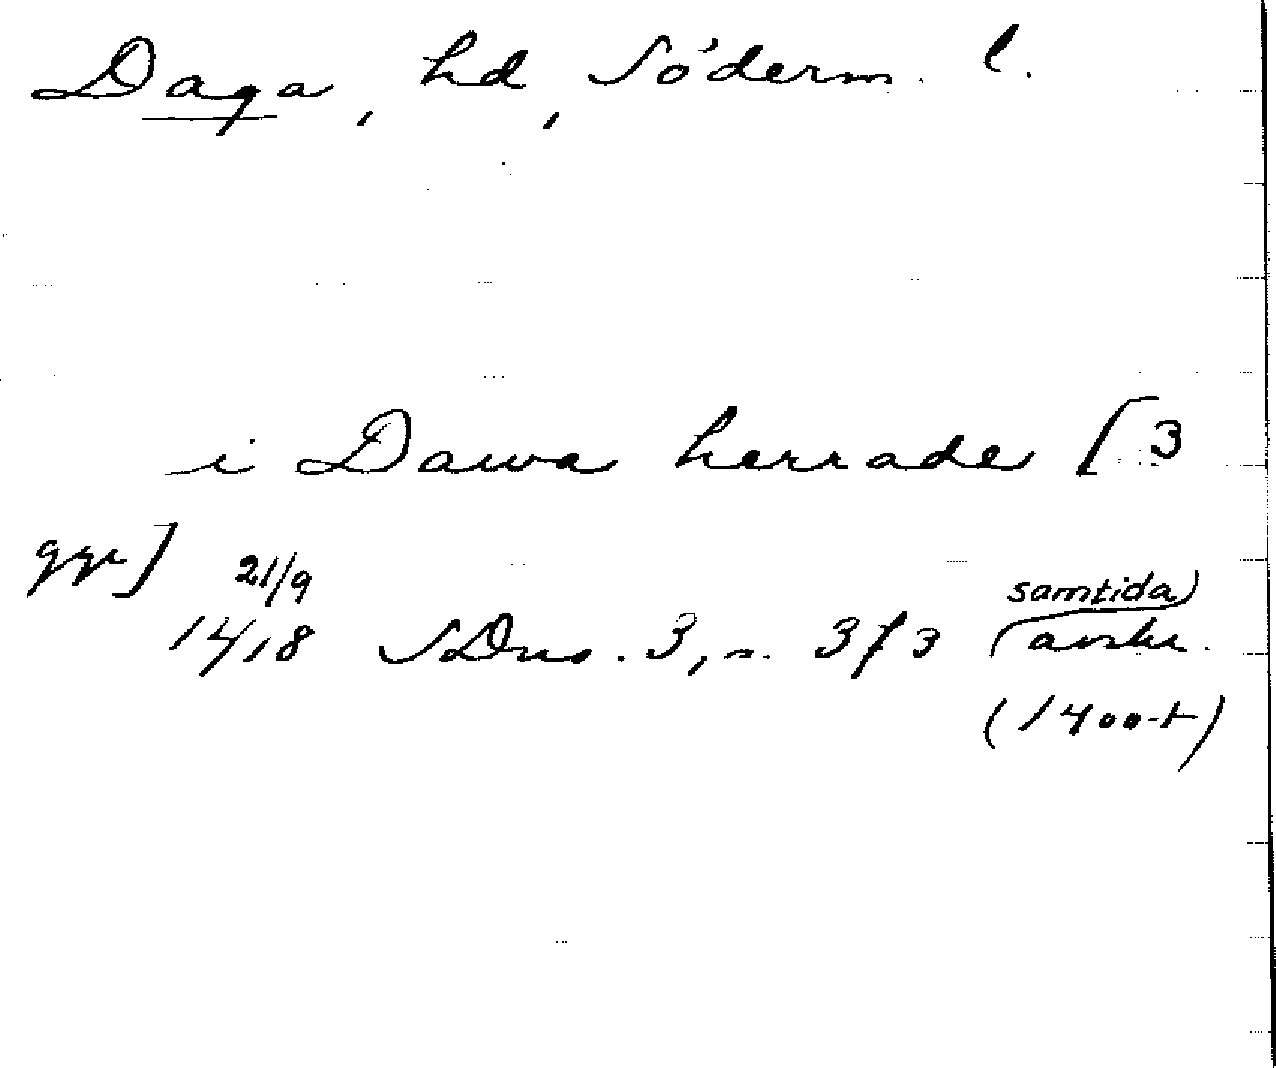 Daga, hd, Söderm. l.
i Dawa herrade [3
ggr] 21/9
1418 SDns. 3, s. 373 samtida avskr.
(1400-t)